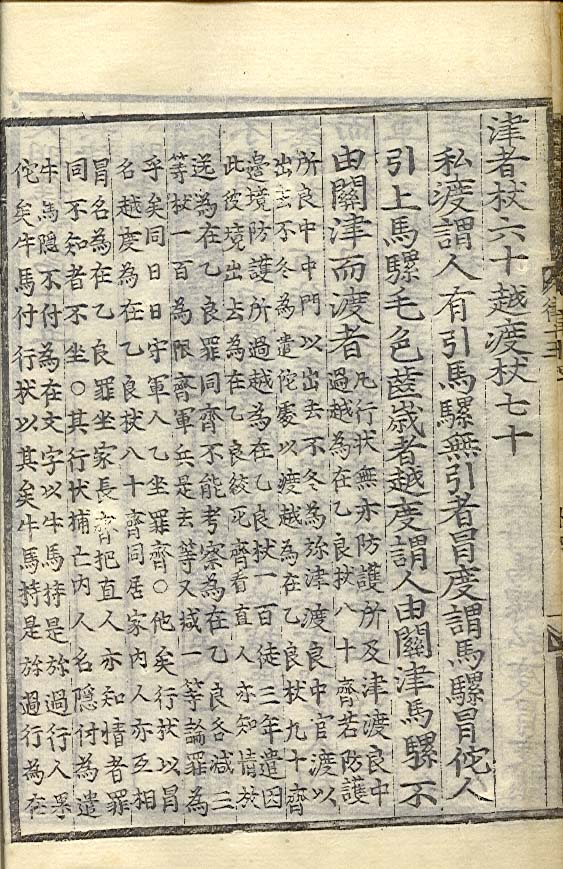 津者杖六十越渡杖七十
私渡謂人有引馬騾無引者冒度謂馬騾冒佗人
引上馬騾毛色齒歲者越度謂人由關津馬騾不
由關津而渡者
凡行狀無亦防護所及津渡良中
過越為在乙良杖八十齊若防護
所良中中門以出去不冬為弥津渡良中官渡以
出去不冬為遣佗處以渡越為在乙良杖九十齊
邊境防護所過越為在乙良杖一百徒三年遣因
此彼境出去為在乙良絞死齊看直人亦知情放
送為在乙良罪同齊不能考察為在乙良各減三
等杖一百為限齊軍兵是去等又減一等論罪為
乎矣同日日守軍人乙坐罪齊○他矣行狀以冒
名越度為在乙良杖八十齊同居家內人亦互相
冒名為在乙良罪坐家長齊把直人亦知情者罪
同不知者不坐○其行狀捕亡內人名隱付為遣
牛馬隱不付為在文字以牛馬持是旀過行人果
佗矣牛馬付行狀以其矣牛馬持是旀過行為在